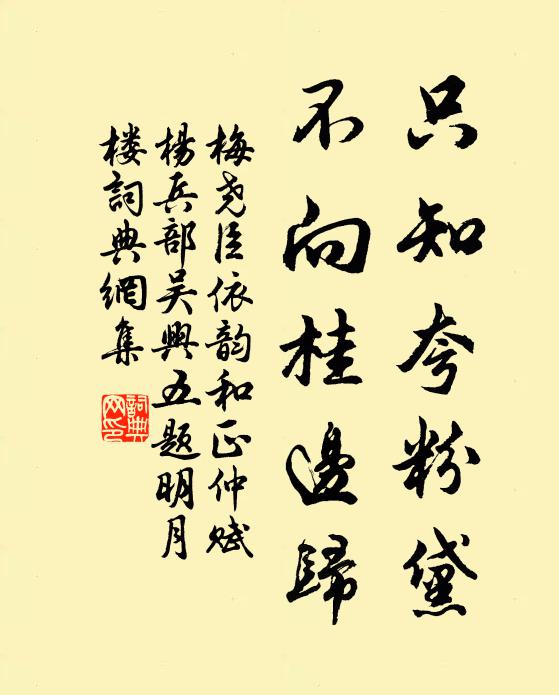 只知夸粉黛
不向桂邊歸
梅尧臣依韵和正仲赋
楊兵部吴興五题明月
楼詞典網集
詞典
网印